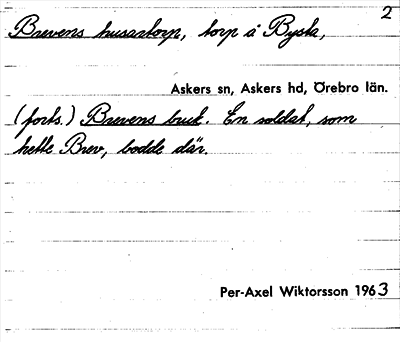 2
Brevens husartorp, torp å Bysta,
Askers sn, Askers hd, Örebro län.
(forts.) Brevens bruk. En soldat, som
hette Brev, bodde där.
Per-Axel Wiktorsson 1963